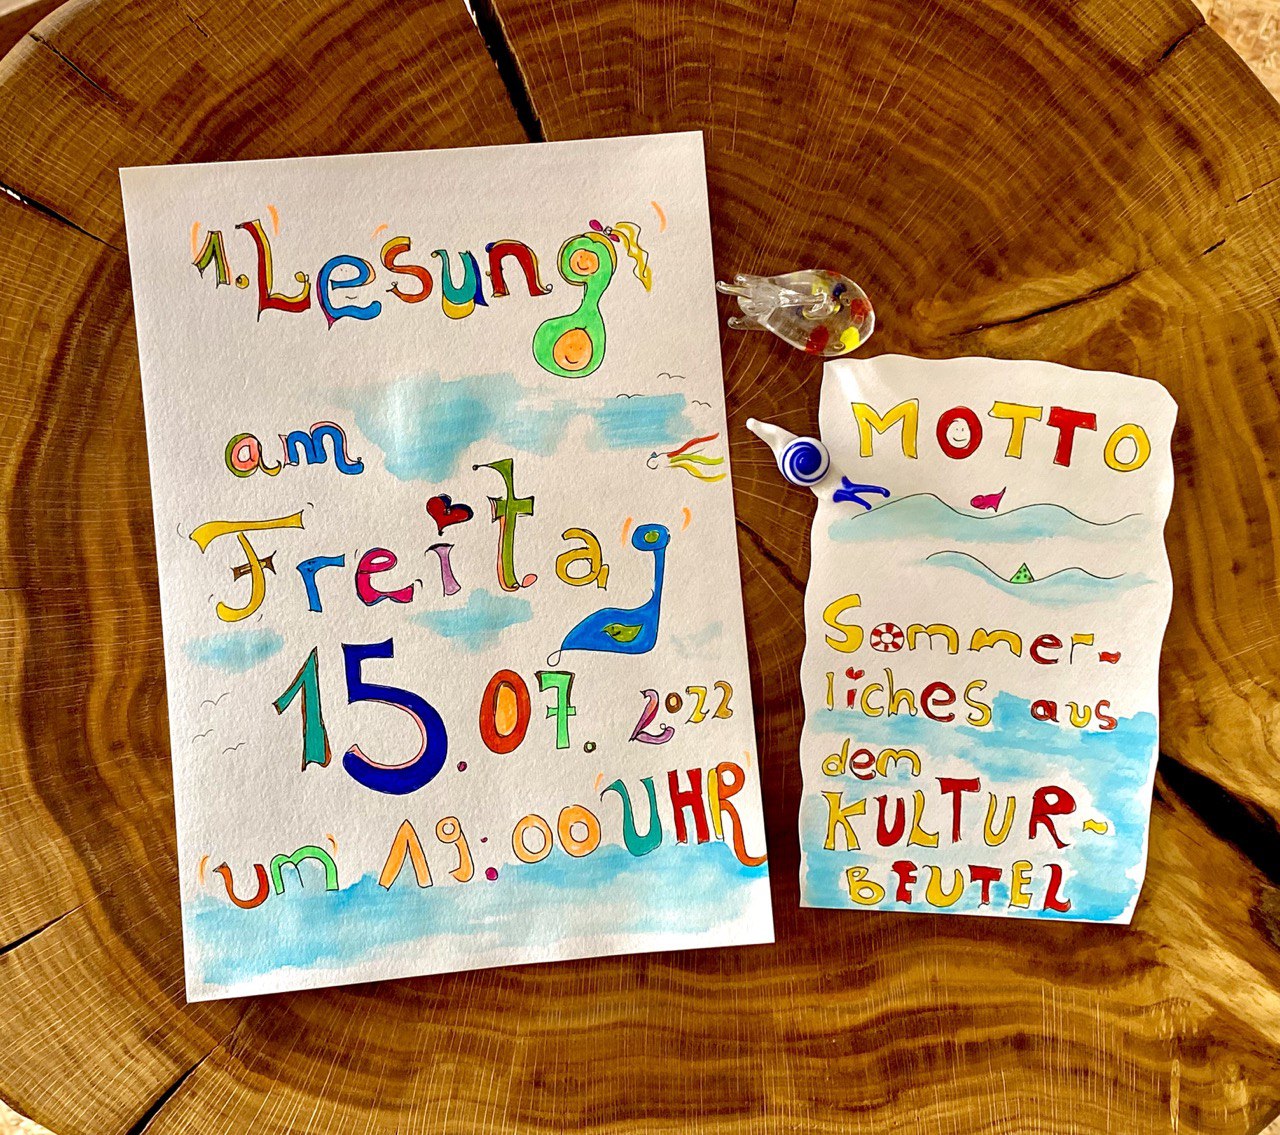 1. Lesung
am
Freitag
15.07. 2022
um 19:00 UHR
MOTTO
Sommer-
liches aus
dem
KULTUR-
BEUTEL